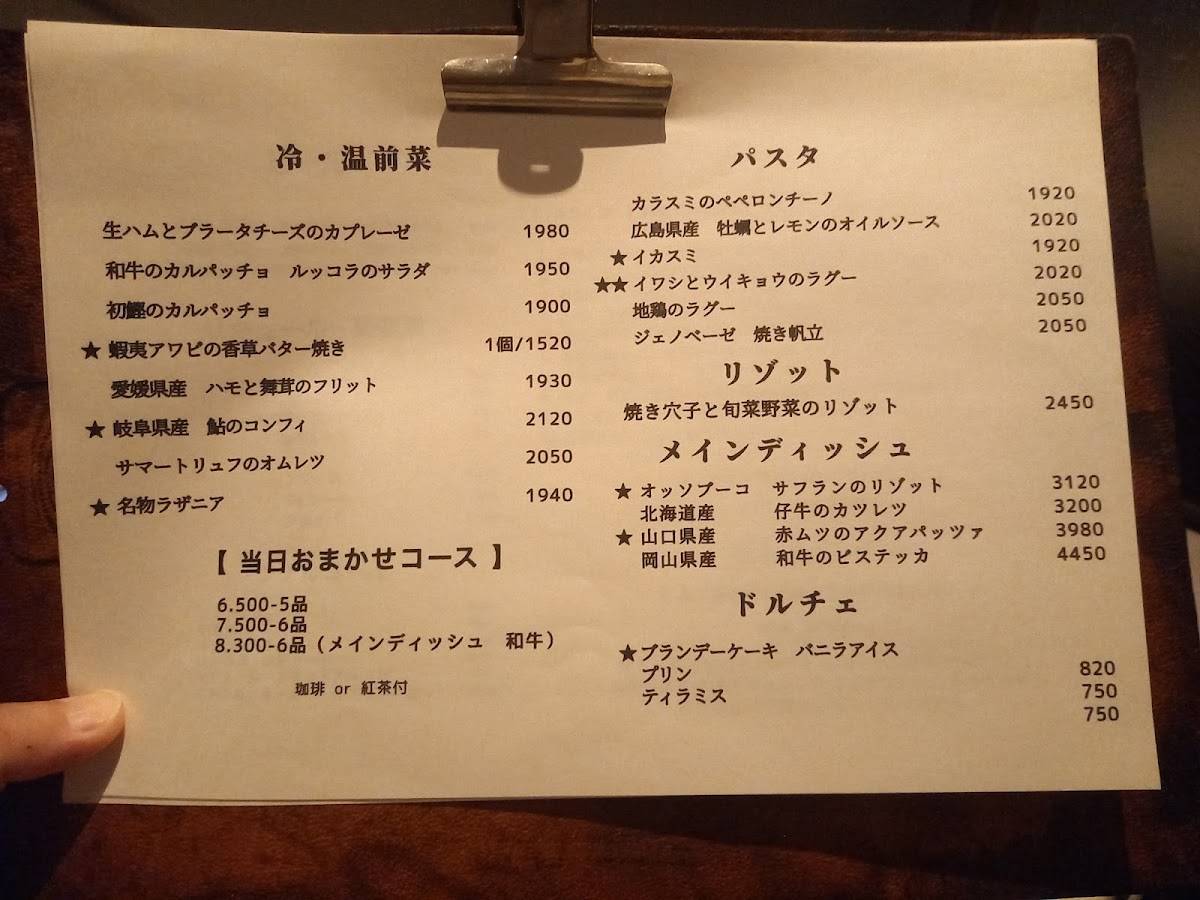 冷・温前菜
生ハムとブラータチーズのカプレーゼ 1980
和牛のカルパッチョ ルッコラのサラダ 1950
初鰹のカルパッチョ 1900
★ 蝦夷アワビの香草バター焼き 1個/1520
愛媛県産 ハモと舞茸のフリット 1930
★ 岐阜県産 鮎のコンフィ 2120
サマートリュフのオムレツ 2050
★ 名物ラザニア 1940
【 当日おまかせコース 】
6.500-5品
7.500-6品
8.300-6品（メインディッシュ 和牛）
珈琲 or 紅茶付
パスタ
カラスミのペペロンチーノ 1920
広島県産 牡蠣とレモンのオイルソース 2020
★ イカスミ 1920
★★ イワシとウイキョウのラグー 2020
地鶏のラグー 2050
ジェノベーゼ 焼き帆立 2050
リゾット
焼き穴子と旬菜野菜のリゾット 2450
メインディッシュ
★ オッソブーコ サフランのリゾット 3120
北海道産 仔牛のカツレツ 3200
★ 山口県産 赤ムツのアクアパッツァ 3980
岡山県産 和牛のビステッカ 4450
ドルチェ
★ ブランデーケーキ バニラアイス 820
プリン 750
ティラミス 750